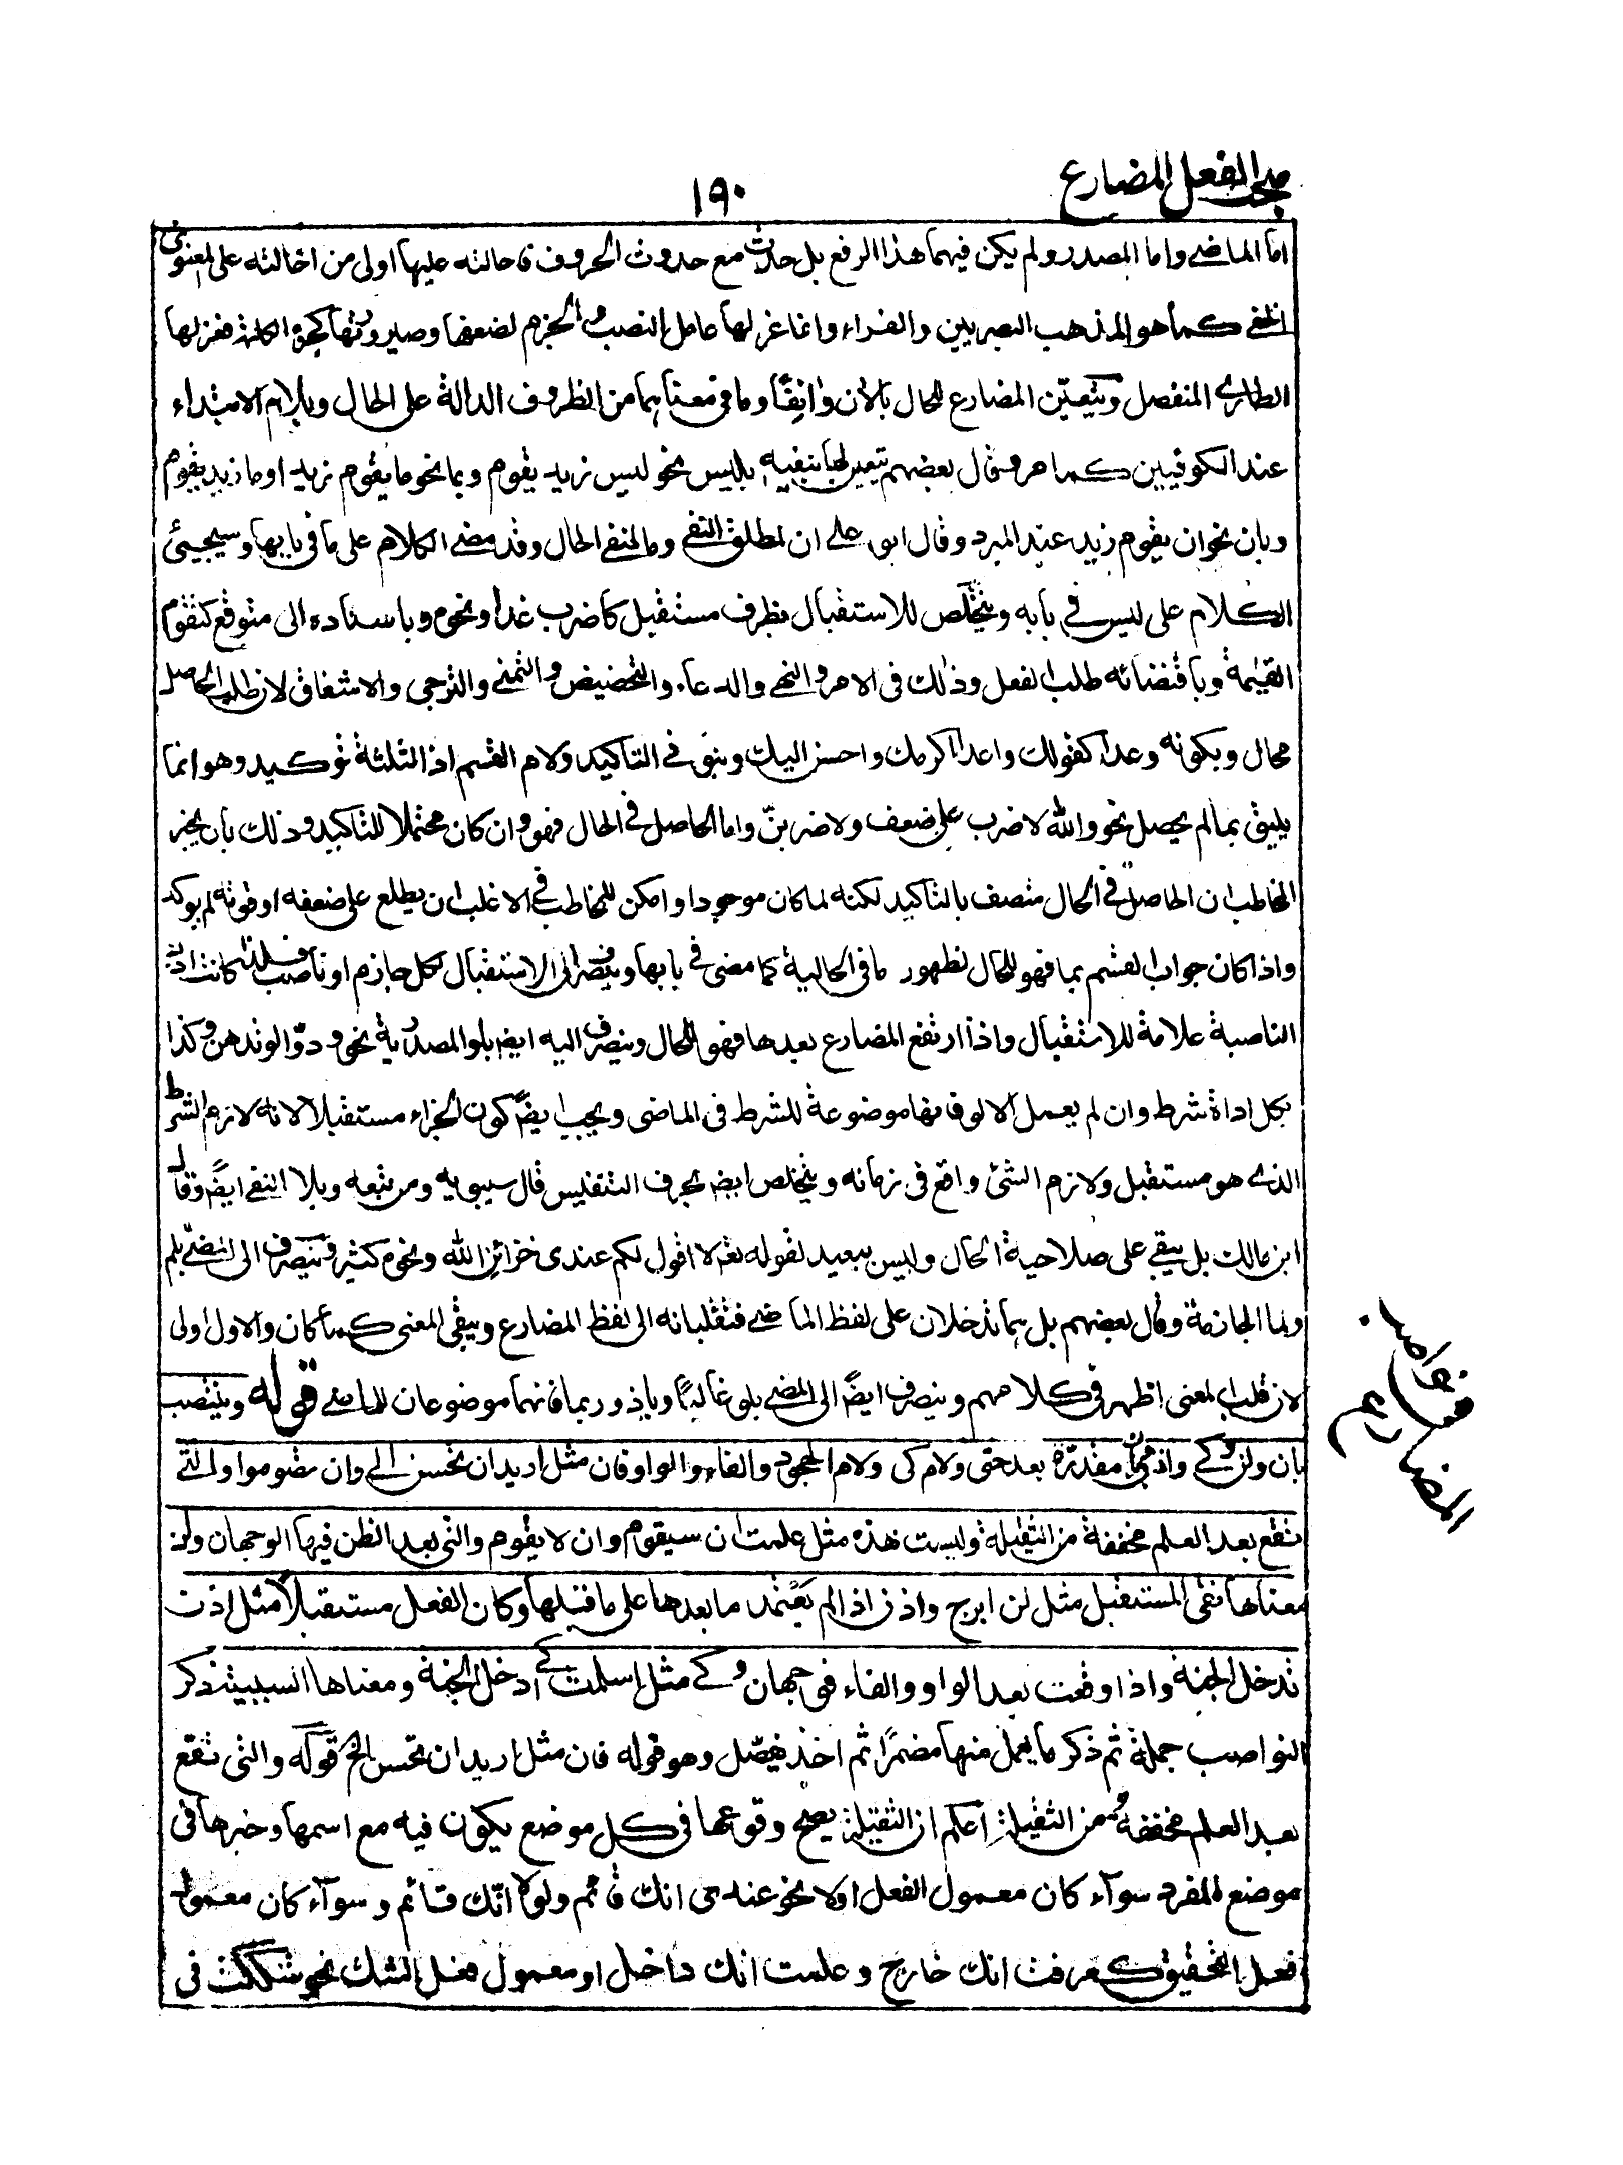 مبحث الفعل المضارع
١٩٠
اما الماضى واما المصدر ولم يكن فيهما هذا الرفع بل حدث مع حدوث الحروف فاحالته عليها اولى من احالته على المعنوى
الخفى كما هو المذهب البصريين والفراء وانما عزلها عامل النصب والجزم لضعفها وصيرورتها كجزء الكلمة فعزلها
الطارى المنفصل ويتعيّن المضارع للحال بالآن وآنفًا وما فى معناهما من الظروف الدالة على الحال وبلام الابتداء
عند الكوفيين كما مر وقال بعضهم يتعين لها بنفيه بليس نحو ليس زيد يقوم وبما نحو ما يقوم زيد او ما زيد يقوم
وبان نحو ان يقوم زيد عند المبرد وقال ابو على ان لمطلق النفى وما لنفى الحال وقد مضى الكلام على ما فى بابها وسيجيئ
الكلام على ليس فى بابه ويتخلص للاستقبال بظرف مستقبل كاضرب غدا ونحوه وباسناده الى متوقع كتقوم
القيٰمة وباقتضائه طلب الفعل وذلك فى الامر والنهى والدعاء والتحضيض والتمنى والترجى والاشفاق لان طلب الحاصل
محال وبكونه وعدا كقولك واعدا اكرمك واحسن اليك وبنونى التاكيد ولام القسم اذ الثلثة توكيد وهو انما
يليق بما لم يحصل نحو والله لاضرب على ضعف ولاضربنّ واما الحاصل فى الحال فهو وان كان محتملا للتاكيد وذلك بان يخبر
المخاطب ان الحاصل فى الحال متصف بالتاكيد لكنه لما كان موجودا وامكن للمخاطب فى الاغلب ان يطلع على ضعفه او قوته لم يوكد
واذا كان جواب القسم بما فهو للحال لظهور ما فى الحالية كما مضى فى بابها وينصرف الى الاستقبال بكل جازم او ناصب فلذا كانت اذن
الناصبة علامة للاستقبال واذا ارتفع المضارع بعدها فهو للحال وينصرف اليه ايض بلو المصدرية نحو ودّوا لو تدهن وكذا
بكل اداة شرط وان لم يعمل الا لو فانها موضوعة للشرط فى الماضى ويجب ايضًا كون الجزاء مستقبلا لانه لازم الشرط
الذى هو مستقبل ولازم الشئ واقع فى زمانه ويتخلص ايض بحرف التنفيس قال سيبويه ومن تبعه وبلا النفى ايضًا وقال
ابن مالك بل يبقى على صلاحية الحال وليس ببعيد لقوله تعٰ لا اقول لكم عندى خزائن الله ونحوه كثير وينصرف الى المضى بلم
ولما الجازمة وقال بعضهم بل هما تدخلان على لفظ الماضى فتقلبانه الى لفظ المضارع ويبقى المعنى كما كان والاول اولى
لان قلب المعنى اظهر فى كلامهم وينصرف ايضًا الى المضى بلو غالبًا وباذ وربما فانهما موضوعان للماضى قوله وينتصب
بان ولن وكى واذن وبان مقدرة بعد حتى ولام كى ولام الجحود والفاء والواو فان مثل اريد ان تحسن الى وان تصوموا والتى
تقع بعد العلم مخففة من الثقيلة وليست هذه مثل علمت ان سيقوم وان لا يقوم والتى بعد الظن فيها الوجهان ولن
معناها نفى المستقبل مثل لن ابرح واذن اذا لم يعتمد ما بعدها على ما قبلها وكان الفعل مستقبلًا مثل اذن
تدخل الجنة واذا وقعت بعد الواو والفاء فوجهان وكى مثل اسلمت كى ادخل الجنة ومعناها السببية ذكر
النواصب جملة ثم ذكر ما يعمل منها مضمرًا ثم اخذ يفصّل وهو قوله فان مثل اريد ان تحسن الخ قوله والتى تقع
بعد العلم مخففة من الثقيلة اعلم ان الثقيلة يصح وقوعها فى كل موضع يكون فيه مع اسمها وخبرها فى
موضع المفرد سوآء كان معمول الفعل اولا نحو عندى انك قائم ولولا انّك قائم وسوآء كان معمول
فعل التحقيق كعرفت انك خارج وعلمت انك داخل او معمول فعل الشك نحو شككت فى
نواصب
المضارع